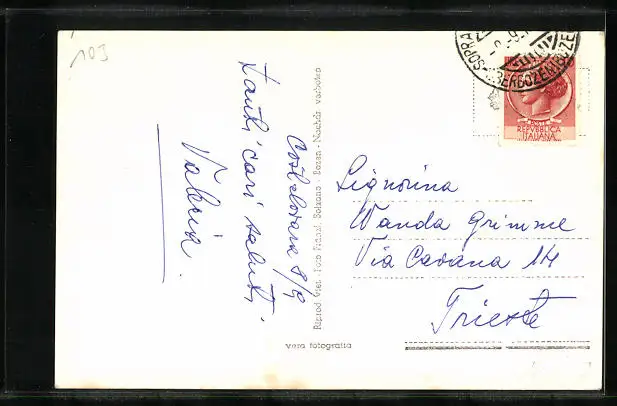 103
Costalovara 8/9
Tanti cari saluti,
Valeria.
Riprod. Viet. - Foto Fränzl Bolzano - Bozen - Nachdr. verboten
vera fotografia
SOPRA
OBERBOZEN
POSTE
REPVBBLICA
ITALIANA
Signorina
Wanda Grimme
Via Cavana 14
Trieste